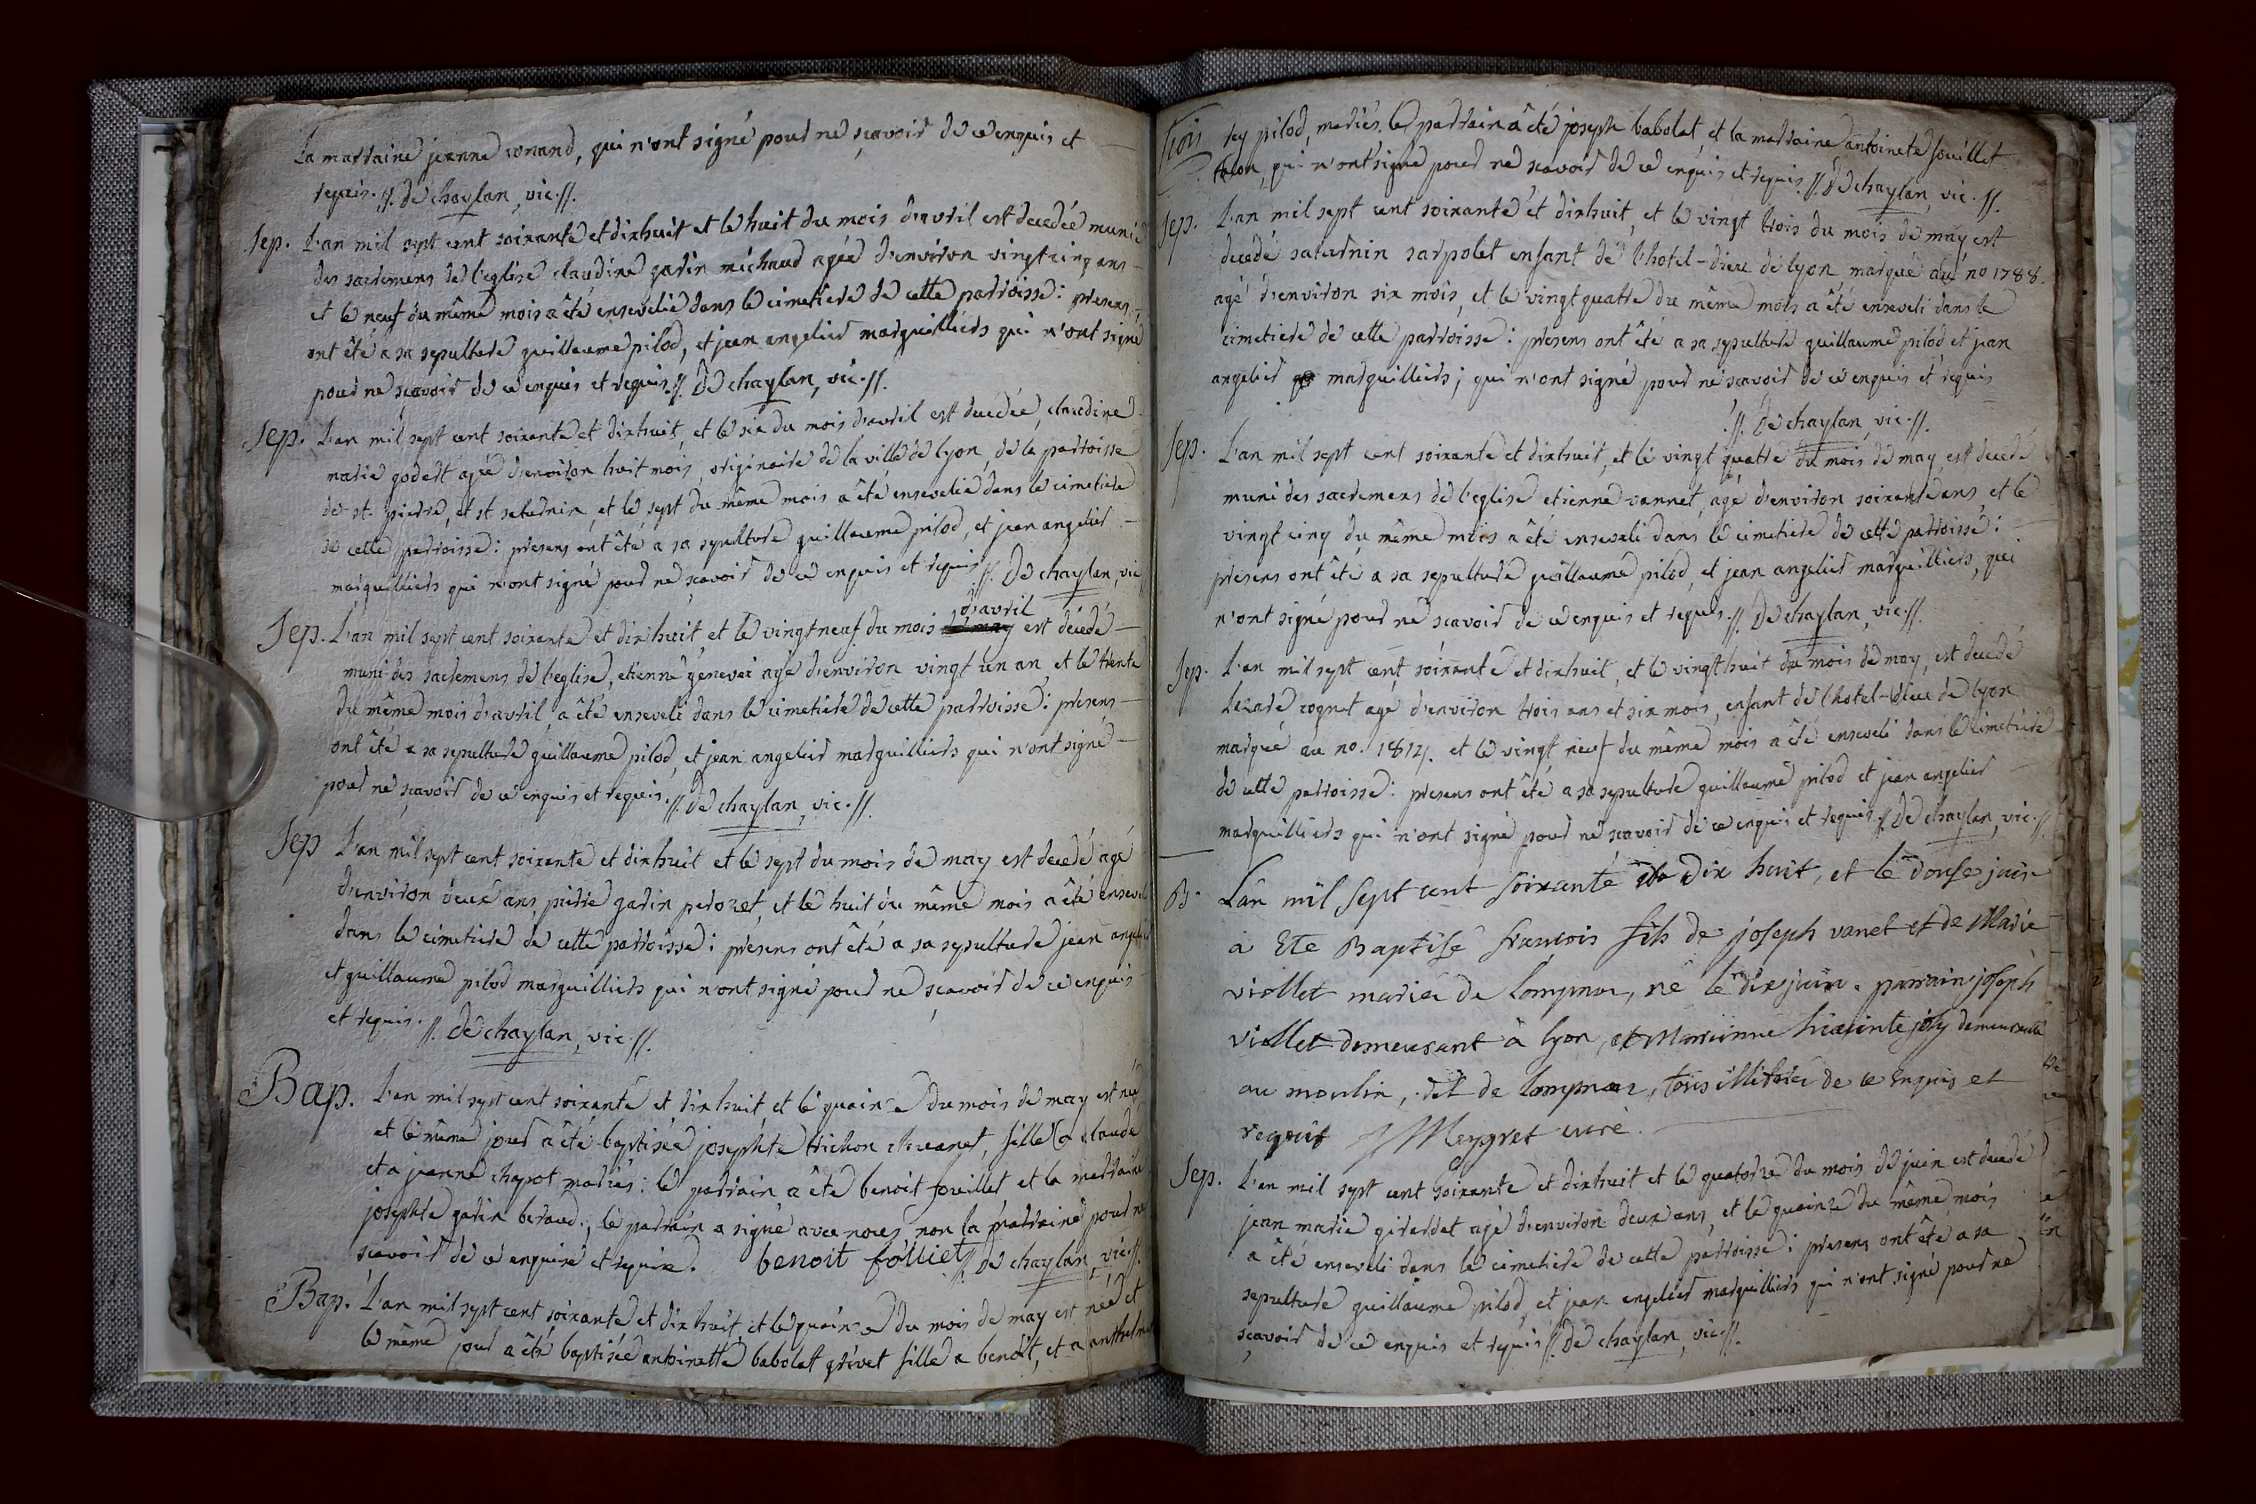 La marraine jeanne conand, qui n'ont signé pour ne sçavoir de ce enquis et
requis .//. De chaylan, vic .//.
Sep. L'an mil sept cent soixante et dixhuit et le huit du mois d'avril est decedée munie
des sacremens de l'eglise claudine garin michaud agée d'environ vingt cinq ans
et le neuf du même mois a été ensevelie dans le cimetiere de cette parroisse : presens
ont été a sa sepulture guillaume pilod, et jean angelier marguilliers qui n'ont signé
pour ne sçavoir de ce enquis et requis .//. De chaylan, vic .//.
Sep. L'an mil sept cent soixante et dixhuit, et le six du mois d'avril est decedée, claudine
marie godert agée d'environ huit mois, originaire de la ville de lyon, de la parroisse
de st. pierre, et st saturnin, et le sept du même mois a été ensevelie dans le cimetiere
de cette parroisse : presens ont été a sa sepulture guillaume pilod, et jean angelier
marguilliers qui n'ont signé pour ne sçavoir de ce enquis et requis .//. De chaylan, vic
d'avril
Sep. L'an mil sept cent soixante et dixhuit, et le vingtneuf du mois est décedé
muni des sacremens de l'eglise, etienne genevoi agé d'environ vingt un an et le trente
du même mois d'avril a été enseveli dans le cimetiere de cette parroisse : presens
ont été a sa sepulture guillaume pilod, et jean angelier marguilliers qui n'ont signé
pour ne sçavoir de ce enquis et requis .//. De chaylan, vic .//.
Sep L'an mil sept cent soixante et dixhuit et le sept du mois de may est decedé agé
d'environ deux ans, pierre garin perozet, et le huit du même mois a été enseveli
dans le cimetiere de cette parroisse : presens ont été a sa sepulture jean angelier
et guillaume pilod marguilliers qui n'ont signé pour ne sçavoir de ce enquis
et requis .//. De chaylan, vic .//.
Bap. L'an mil sept cent soixante et dixhuit et le quinze du mois de may est née
et le même jour a été baptisée josephte trichon chavanet, fille a claude
et a jeanne chapot mariés : le parrain a été benoit fouillet et la marraine
josephte garin beraud ; le parrain a signé avec nous, non la marraine pour ne
sçavoir de ce enquise et requise. benoit folliet De chaylan, vic .//.
Bap. L'an mil sept cent soixante et dixhuit, et le quinze du mois de may est née et
le même jour a été baptisée antoinette babolat grivet fille a benoit, et a anthelmet
Trois rey pilod, mariés. le parrain a été joseph babolat, et la marraine antoinete fouillet
talon, qui n'ont signé pour ne sçavoir de ce enquis et requis .//. De chaylan, vic .//.
Sep. L'an mil sept cent soixante et dixhuit, et le vingt trois du mois de may est
decedé saturnin sarpolet enfant de l'hotel-dieu de lyon marqué au no 1788.
agé d'environ six mois, et le vingtquatre du même mois a été enseveli dans le
cimetiere de cette parroisse : presens ont été a sa sepulture guillaume pilod et jean
angelier marguilliers ; qui n'ont signé pour ne sçavoir de ce enquis et requis
.//. De chaylan, vic .//.
Sep. L'an mil sept cent soixante et dixhuit, et le vingt quatre du mois de may, est decedé
muni des sacremens de l'eglise etienne vannet, agé d'environ soixante ans et le
vingt cinq du même mois a été enseveli dans le cimetiere de cette parroisse :
presens ont été a sa sepulture guillaume pilod, et jean angelier marguilliers, qui
n'ont signé pour ne sçavoir de ce enquis et requis .//. De chaylan, vic .//.
Sep. L'an mil sept cent soixante et dixhuit, et le vingthuit du mois de may, est decedé
Lezare cognet agé d'environ trois ans et six mois, enfant de l'hotel-dieu de lyon
marqué au no. et le vingt neuf du même mois a été enseveli dans le cimetiere
de cette parroisse : presens ont été a sa sepulture guillaume pilod et jean angelier
marguilliers qui n'ont signé pour ne sçavoir de ce enquis et requis .//. De chaylan, vic .//.
B. L'an mil sept cent soixante dix huit, et le douse juin
a ete Baptisé francois fils de joseph vanet et de Marie
viollet mariés de Lompnas, né le dix juin. parrain joseph
viollet demeurant à lyon, et Marianne hiacinte joly demeurante
au moulin, dit de Lompnas, tous illitérés de ce enquis et
requis Meygret curé.
Sep. L'an mil sept cent soixante et dixhuit et le quatorze du mois de juin est decedé
jean marie girerdet agé d'environ deux ans, et le quinze du même mois
a été enseveli dans le cimetiere de cette parroisse : presens ont été a sa
sepulture guillaume pilod, et jean angelier marguilliers qui n'ont signé pour ne
sçavoir de ce enquis et requis .//. De chaylan, vic .//.